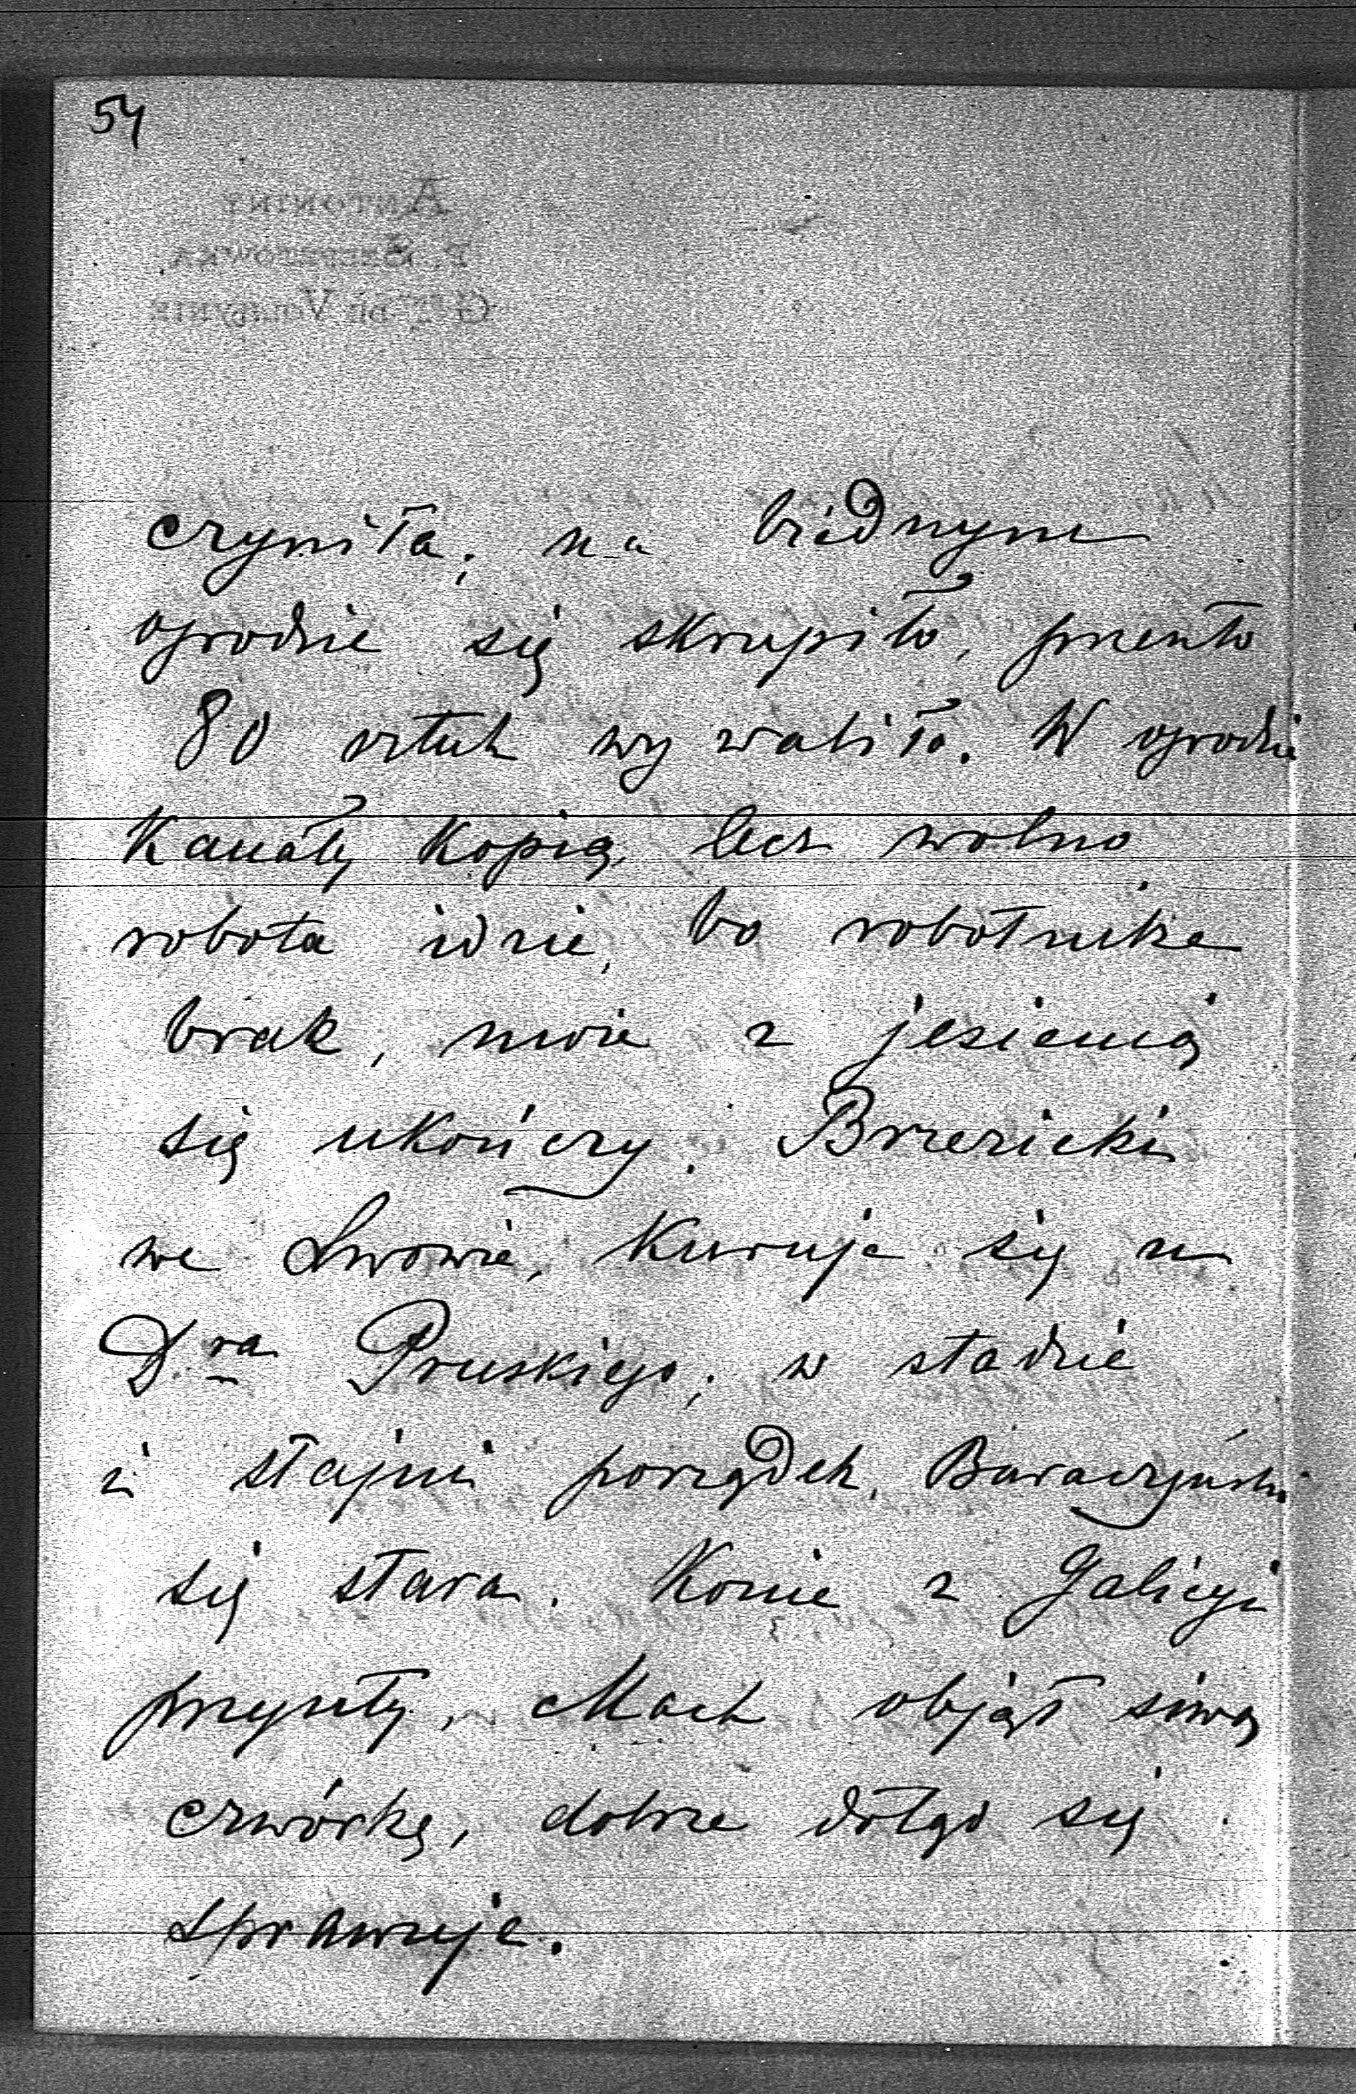 54
ANTONINY
P. SZEPETOWKA
Gt DE VOLHYNIE
czyniła; na biednym
ogrodzie się skrupiło, przeszło
80 sztuk wywaliło. W ogrodzie
Kanały Kopią, lecz wolno
robota idzie, bo robotnika
brak, może z jesienią
się ukończy. Brzezicki
we Lwowie, Kuruje się u
Dra Pruskiego; w stadzie
i stajni porządek, Baraczyński
się stara. Konie z Galicyi
przyszły, Mach objął siwą
czwórkę, dobrze dotąd się
sprawuje.